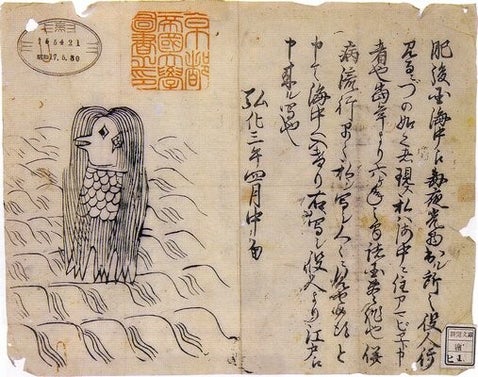 肥後国海中え毎夜光物出ル所之役人行
見るニづの如く者現ス私ハ海中ニ住アマビヱト申
者也當年より六ヶ年之間諸国豊作也併
病流行早々私ヲ写シ人々ニ見せ候得と
申て海中へ入けり右写シ役人より江戸え
申来ル写也
弘化三年四月中旬
京都
帝國大學
圖書之印
17.5.30